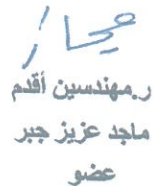 ر.مهندسين أقدم
ماجد عزيز جبر
عضو